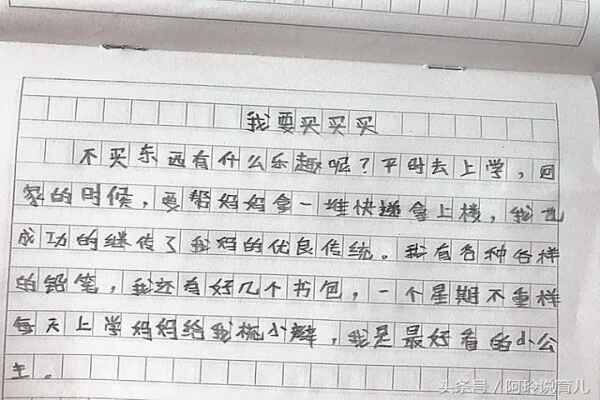 我要买买买
不买东西有什么乐趣呢？平时去上学，回
家的时候，要帮妈妈拿一堆快递拿上楼，我也
成功的继传了我妈的优良传统。我有各种各样
的铅笔，我还有好几个书包，一个星期不重样
每天上学妈妈给我梳小辫，我是最好看的小公
主。
头条号/阿玲说育儿